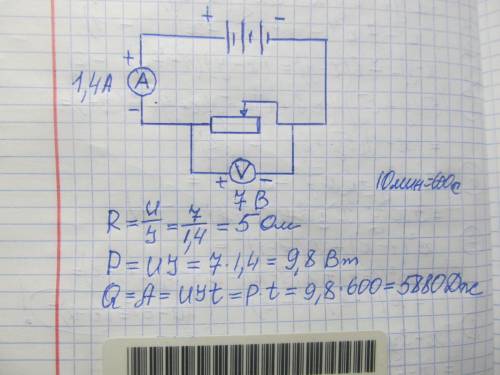 + -
+
1,4A A
-
+ V -
7 В
10 мин = 600 с
R = U/I = 7/1,4 = 5 Ом
P = UI = 7 · 1,4 = 9,8 Вт
Q = A = UIt = P · t = 9,8 · 600 = 5880 Дж